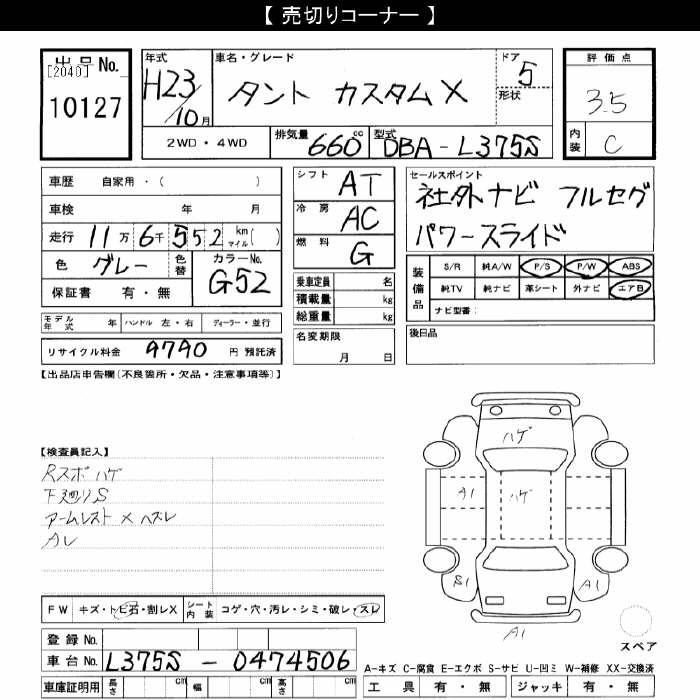 【 売切りコーナー 】
出品 No. 年式 車名・グレード ドア 評価点
[2040] H23 タント カスタム X 5 3.5
10127 /10月 形状
2WD・4WD 排気量 660 cc 型式 DBA-L375S 内装 C
車歴 自家用・( ) シフト AT セールスポイント
車検 年 月 冷房 AC 社外ナビ フルセグ
走行 11万 6千 552 km マイル( ) 燃料 G パワースライド
色 グレー 色替 カラーNo. G52
保証書 有・無
乗車定員 名
積載量 kg
総重量 kg
装備品 S/R 純A/W P/S P/W ABS
純TV 純ナビ 革シート 外ナビ エアB
ナビ型番:
モデル年式 年 ハンドル 左・右 ディーラー・並行
名変期限 月 日
後日品
リサイクル料金 9790 円 預託済
【出品店申告欄(不良箇所・欠品・注意事項等)】
【検査員記入】
Rスポ ハゲ
下廻りS
アームレスト × ハズレ
Aレ
ハゲ
A1 ハゲ
S1 A1
A1
スペア
FW キズ・トビ石・割レX シート内装 コゲ・穴・汚レ・シミ・破レ・スレ
登録 No.
車台 No. L375S - 0474506
A-キズ C-腐食 E-エクボ S-サビ U-凹ミ W-補修 XX-交換済
車庫証明用 長さ cm 幅 cm 高さ cm 工具 有・無 ジャッキ 有・無